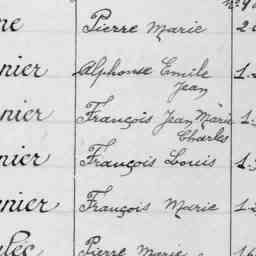 Pierre Marie
nier Alphonse Emile
Jean
nier François Jean Marie
Charles
nier François Louis
nier François Marie
Pierre Marie